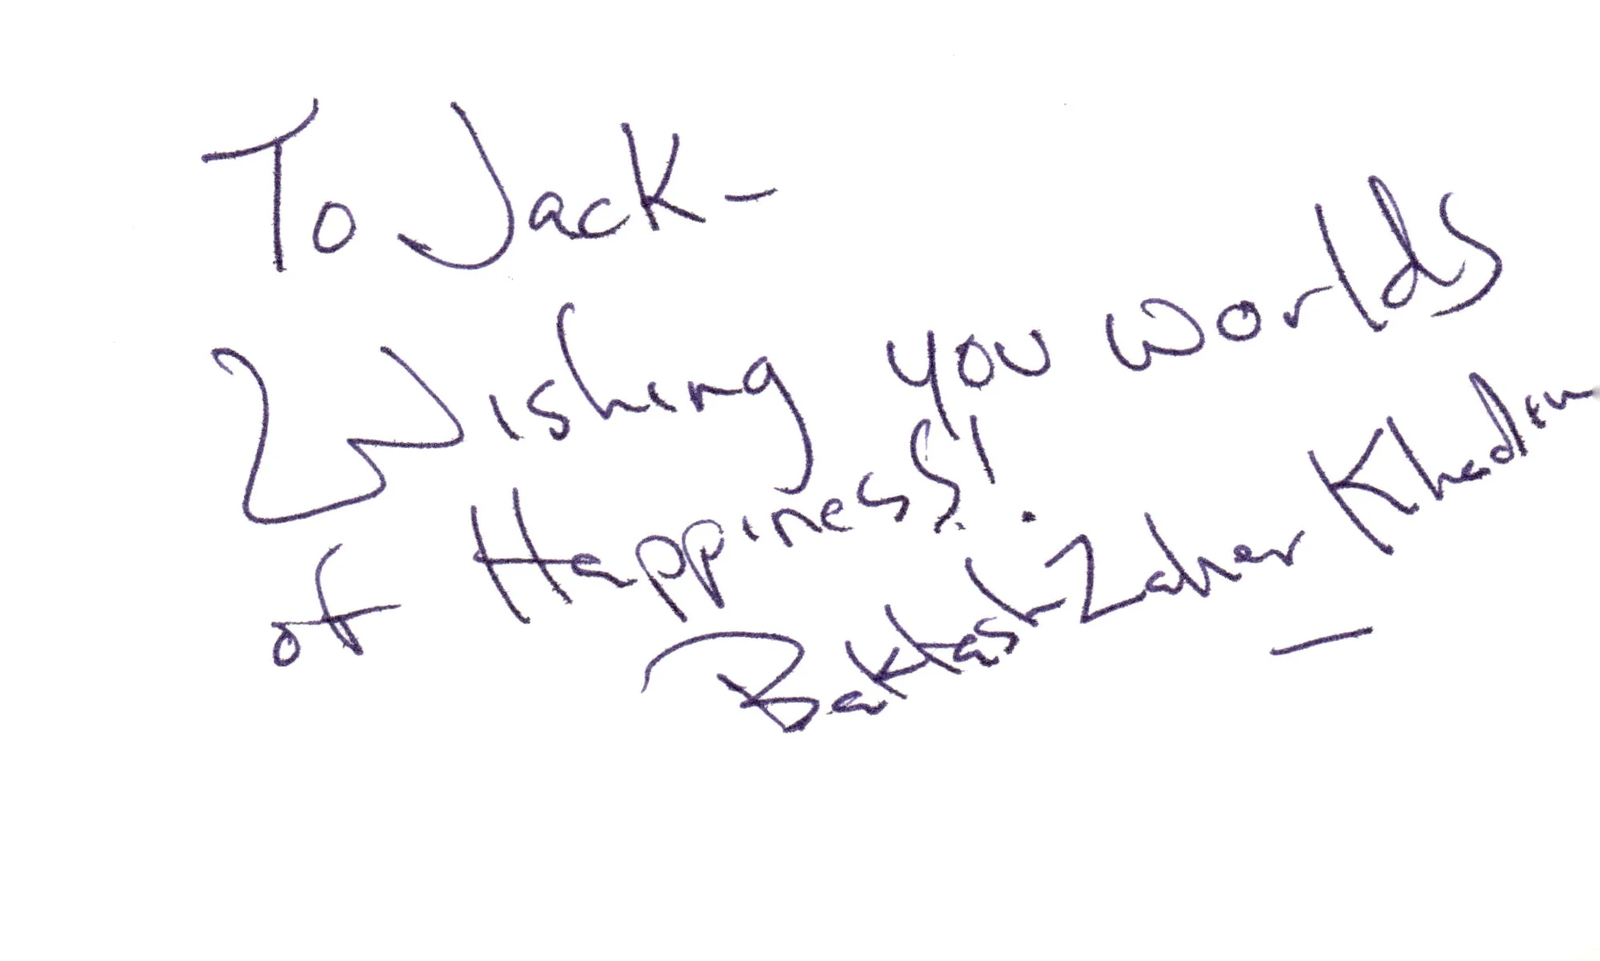 To Jack-
Wishing you Worlds
of Happiness!
Baktash Zaher Khadem